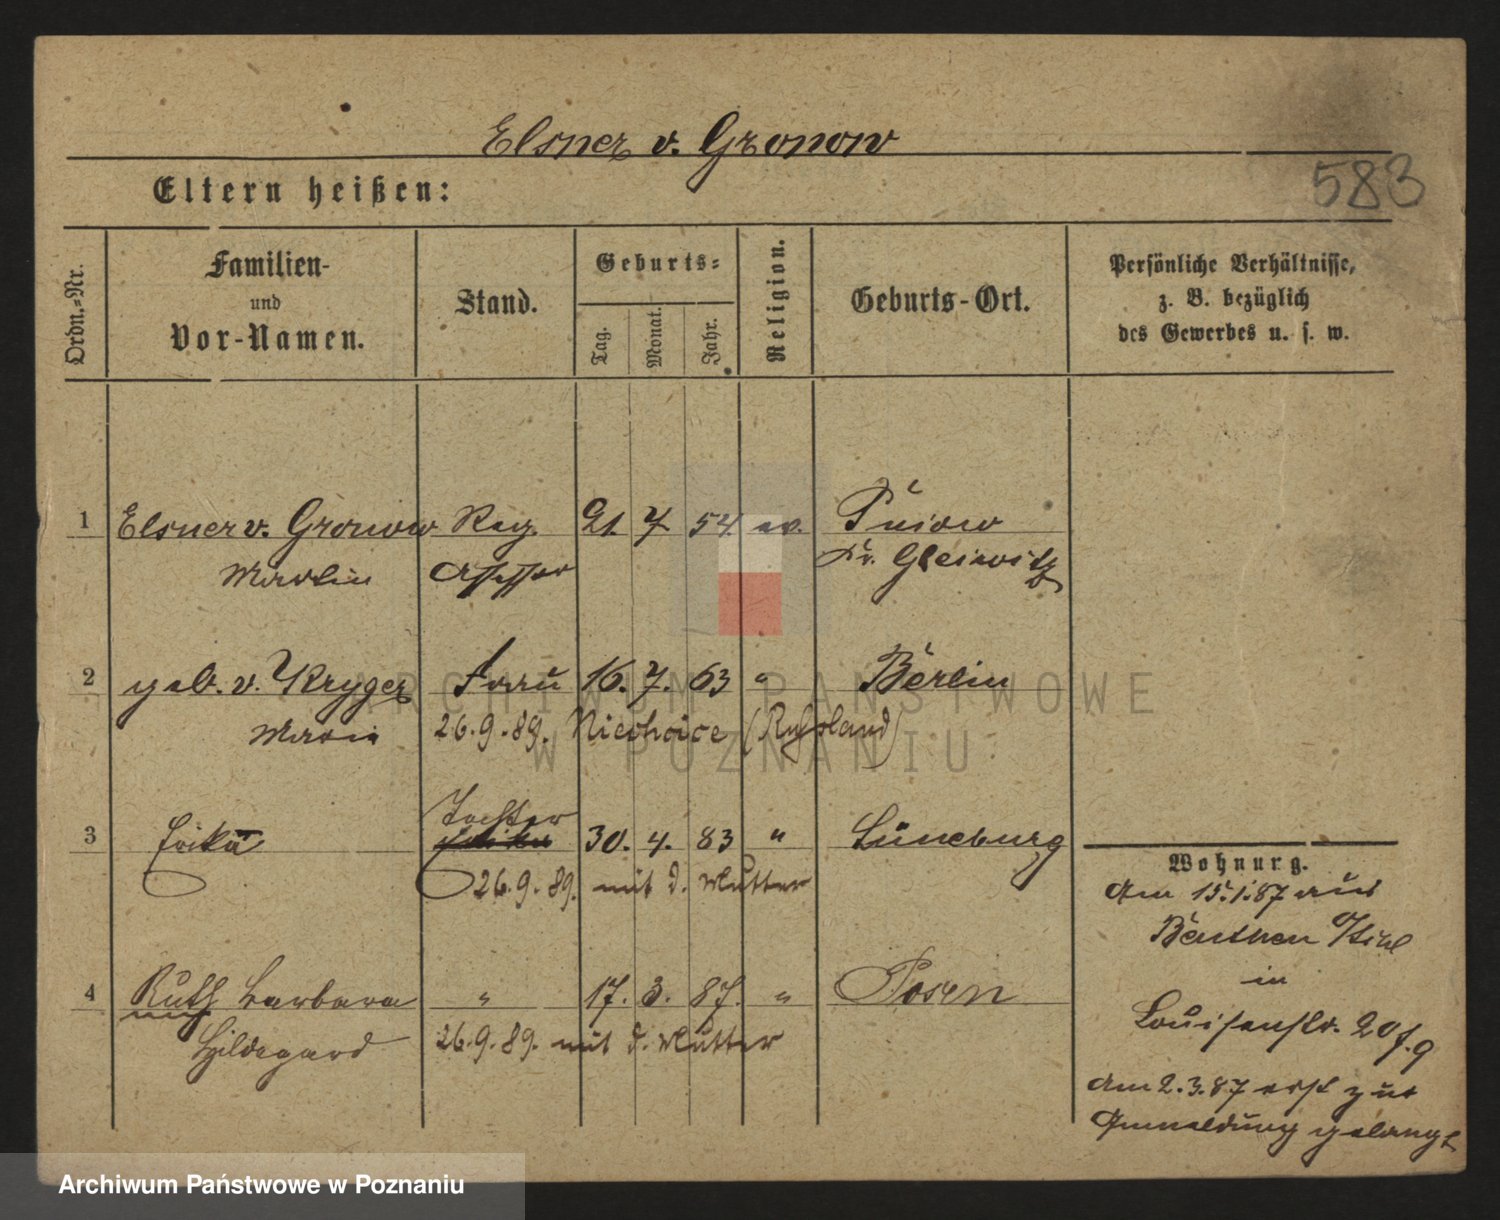 Elsner v. Gronow
583
Eltern heißen:
Ordn.-Nr.
Familien-
und
Vor-Namen.
Stand.
Geburts-
Tag.
Monat.
Jahr.
Religion.
Geburts-Ort.
Persönliche Verhältnisse,
z. B. bezüglich
des Gewerbes u. s. w.
1 Elsner v. Gronow Reg. 21. 7. 54. ev. Pniow
Martin Assessor Kr. Gleiwitz
2 geb. v. Kryger Frau 16. 7. 63 " Berlin
Maria 26.9.89. (Rußland)
3 Erika Tochter 30. 4. 83 " Lüneburg
26.9.89. mit d. Mutter
4 Ruth Barbara " 17. 3. 87. " Posen
Hildegard 26.9.89. mit d. Mutter
Wohnung.
Am 15.1.87 aus
Beuthen
in
Louisenstr. 20
am 2.3.87 erst zur
Anmeldung gelangt
ARCHIWUM PAŃSTWOWE
W POZNANIU
Archiwum Państwowe w Poznaniu